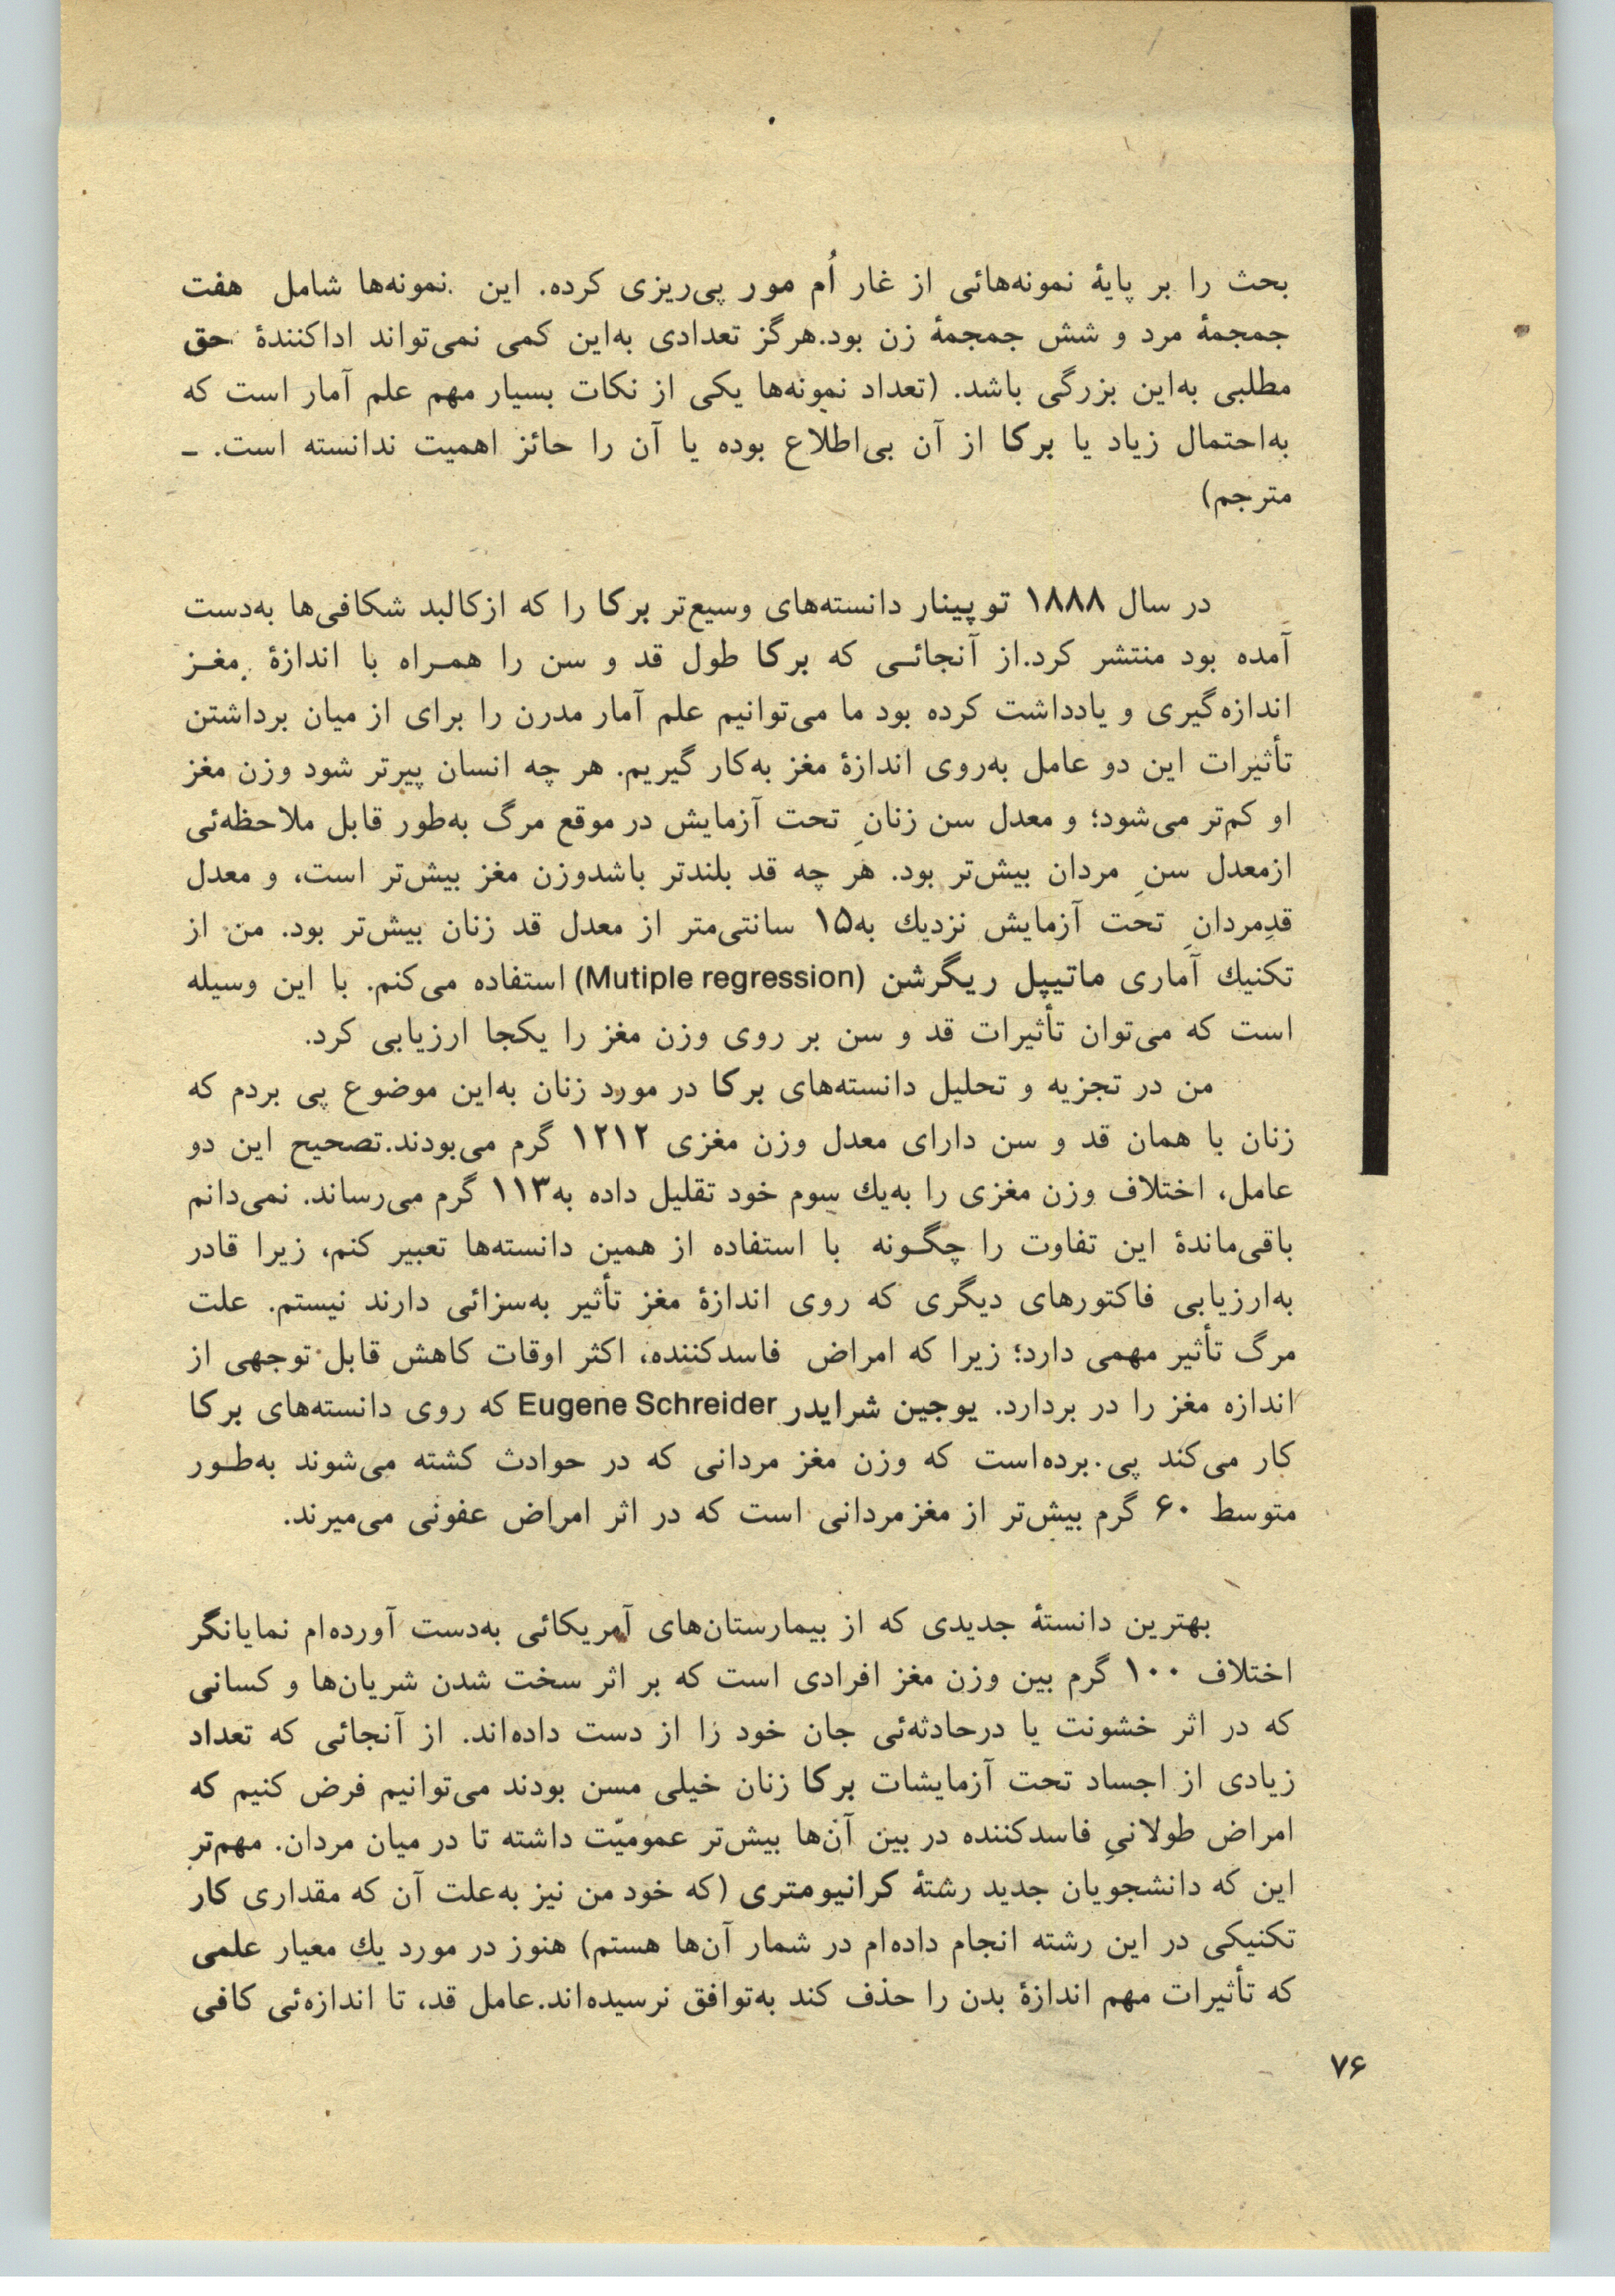 بحث را بر پایهٔ نمونه‌هائی از غار اُم مور پی‌ریزی کرده. این نمونه‌ها شامل هفت
جمجمهٔ مرد و شش جمجمهٔ زن بود.هرگز تعدادی به‌این کمی نمی‌تواند اداکنندهٔ حق
مطلبی به‌این بزرگی باشد. (تعداد نمونه‌ها یکی از نکات بسیار مهم علم آمار است که
به‌احتمال زیاد یا برکا از آن بی‌اطلاع بوده یا آن را حائز اهمیت ندانسته است. ـ
مترجم)
در سال ۱۸۸۸ توپینار دانسته‌های وسیع‌تر برکا را که ازکالبد شکافی‌ها به‌دست
آمده بود منتشر کرد.از آنجائـی که برکا طول قد و سن را همـراه با اندازهٔ مغـز
اندازه‌گیری و یادداشت کرده بود ما می‌توانیم علم آمار مدرن را برای از میان برداشتن
تأثیرات این دو عامل به‌روی اندازهٔ مغز به‌کار گیریم. هر چه انسان پیرتر شود وزن مغز
او کم‌تر می‌شود؛ و معدل سن زنانِ تحت آزمایش در موقع مرگ به‌طور قابل ملاحظه‌ئی
ازمعدل سنِ مردان بیش‌تر بود. هر چه قد بلندتر باشدوزن مغز بیش‌تر است، و معدل
قدِمردانِ تحت آزمایش نزدیك به‌۱۵ سانتی‌متر از معدل قد زنان بیش‌تر بود. من از
تکنیك آماری ماتیپل ریگرشن (Mutiple regression) استفاده می‌کنم. با این وسیله
است که می‌توان تأثیرات قد و سن بر روی وزن مغز را یکجا ارزیابی کرد.
من در تجزیه و تحلیل دانسته‌های برکا در مورد زنان به‌این موضوع پی بردم که
زنان با همان قد و سن دارای معدل وزن مغزی ۱۲۱۲ گرم می‌بودند.تصحیح این دو
عامل، اختلاف وزن مغزی را به‌یك سوم خود تقلیل داده به‌۱۱۳ گرم می‌رساند. نمی‌دانم
باقی‌ماندهٔ این تفاوت را چگـونه با استفاده از همین دانسته‌ها تعبیر کنم، زیرا قادر
به‌ارزیابی فاکتورهای دیگری که روی اندازهٔ مغز تأثیر به‌سزائی دارند نیستم. علت
مرگ تأثیر مهمی دارد؛ زیرا که امراض فاسدکننده، اکثر اوقات کاهش قابل توجهی از
اندازه مغز را در بردارد. یوجین شرایدر Eugene Schreider که روی دانسته‌های برکا
کار می‌کند پی برده‌است که وزن مغز مردانی که در حوادث کشته می‌شوند به‌طـور
متوسط ۶۰ گرم بیش‌تر از مغزمردانی است که در اثر امراض عفونی می‌میرند.
بهترین دانستهٔ جدیدی که از بیمارستان‌های آمریکائی به‌دست آورده‌ام نمایانگر
اختلاف ۱۰۰ گرم بین وزن مغز افرادی است که بر اثر سخت شدن شریان‌ها و کسانی
که در اثر خشونت یا درحادثه‌ئی جان خود را از دست داده‌اند. از آنجائی که تعداد
زیادی از اجساد تحت آزمایشات برکا زنان خیلی مسن بودند می‌توانیم فرض کنیم که
امراض طولانیِ فاسدکننده در بین آن‌ها بیش‌تر عمومیّت داشته تا در میان مردان. مهم‌تر
این که دانشجویان جدید رشتهٔ کرانیومتری (که خود من نیز به‌علت آن که مقداری کار
تکنیکی در این رشته انجام داده‌ام در شمار آن‌ها هستم) هنوز در مورد یك معیار علمی
که تأثیرات مهم اندازهٔ بدن را حذف کند به‌توافق نرسیده‌اند.عامل قد، تا اندازه‌ئی کافی
۷۶